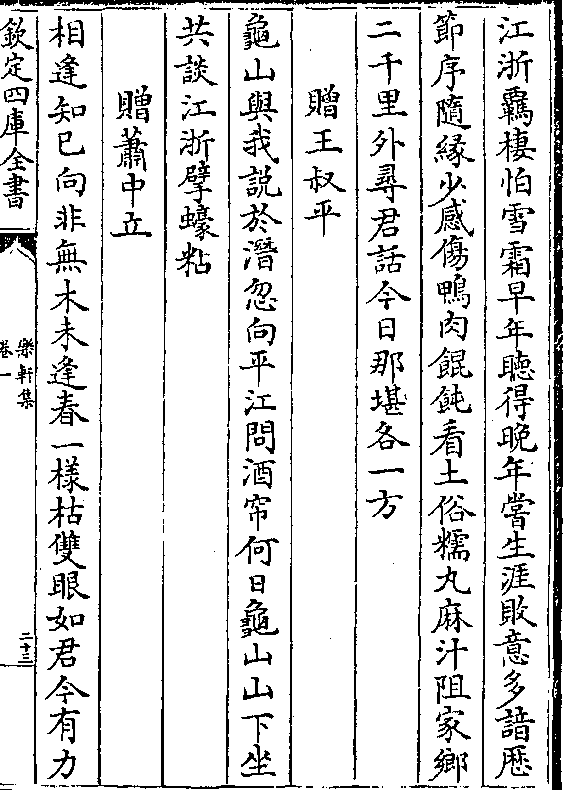 江浙羈棲怕雪霜早年聽得晚年嘗生涯敗意多諳歴
節序隨緣少感傷鴨肉餛飩看土俗糯丸麻汁阻家鄉
二千里外尋君話今日那堪各一方
贈王叔平
龜山與我説於潛忽向平江問酒帘何日龜山山下坐
共談江浙擘蠔粘
贈蕭中立
相逢知已向非無木未逢春一樣枯雙眼如君今有力
欽定四庫全書
樂軒集
卷一
二十三